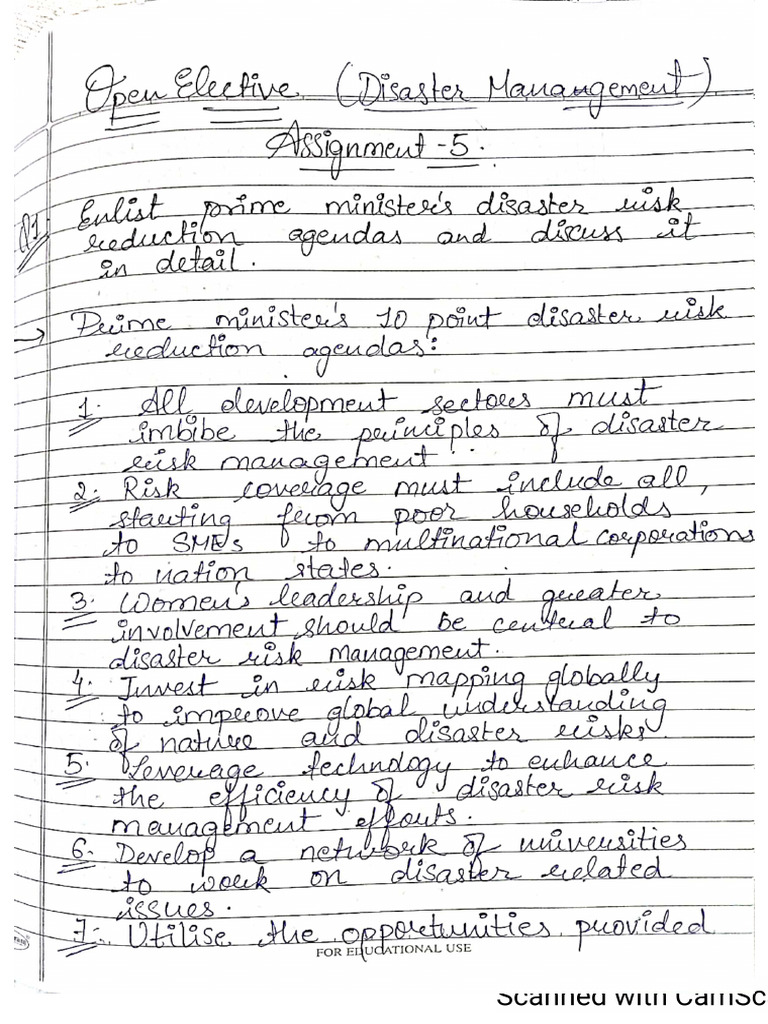 Open Elective (Disaster Manangement)
Assignment - 5.
Q1. Enlist prime minister's disaster risk
reduction agendas and discuss it
in detail.
→ Prime minister's 10 point disaster risk
reduction agendas:
1. All development sectors must
imbibe the principles of disaster
risk management.
2. Risk coverage must include all,
starting from poor households
to SMEs to multinational corporations
to nation states.
3. Women's leadership and greater
involvement should be central to
disaster risk management.
4. Invest in risk mapping globally
to improve global understanding
of nature and disaster risks.
5. Leverage technology to enhance
the efficiency of disaster risk
management efforts.
6. Develop a network of universities
to work on disaster related
issues.
7. Utilise the opportunities provided
FOR EDUCATIONAL USE
Scanned with CamSc